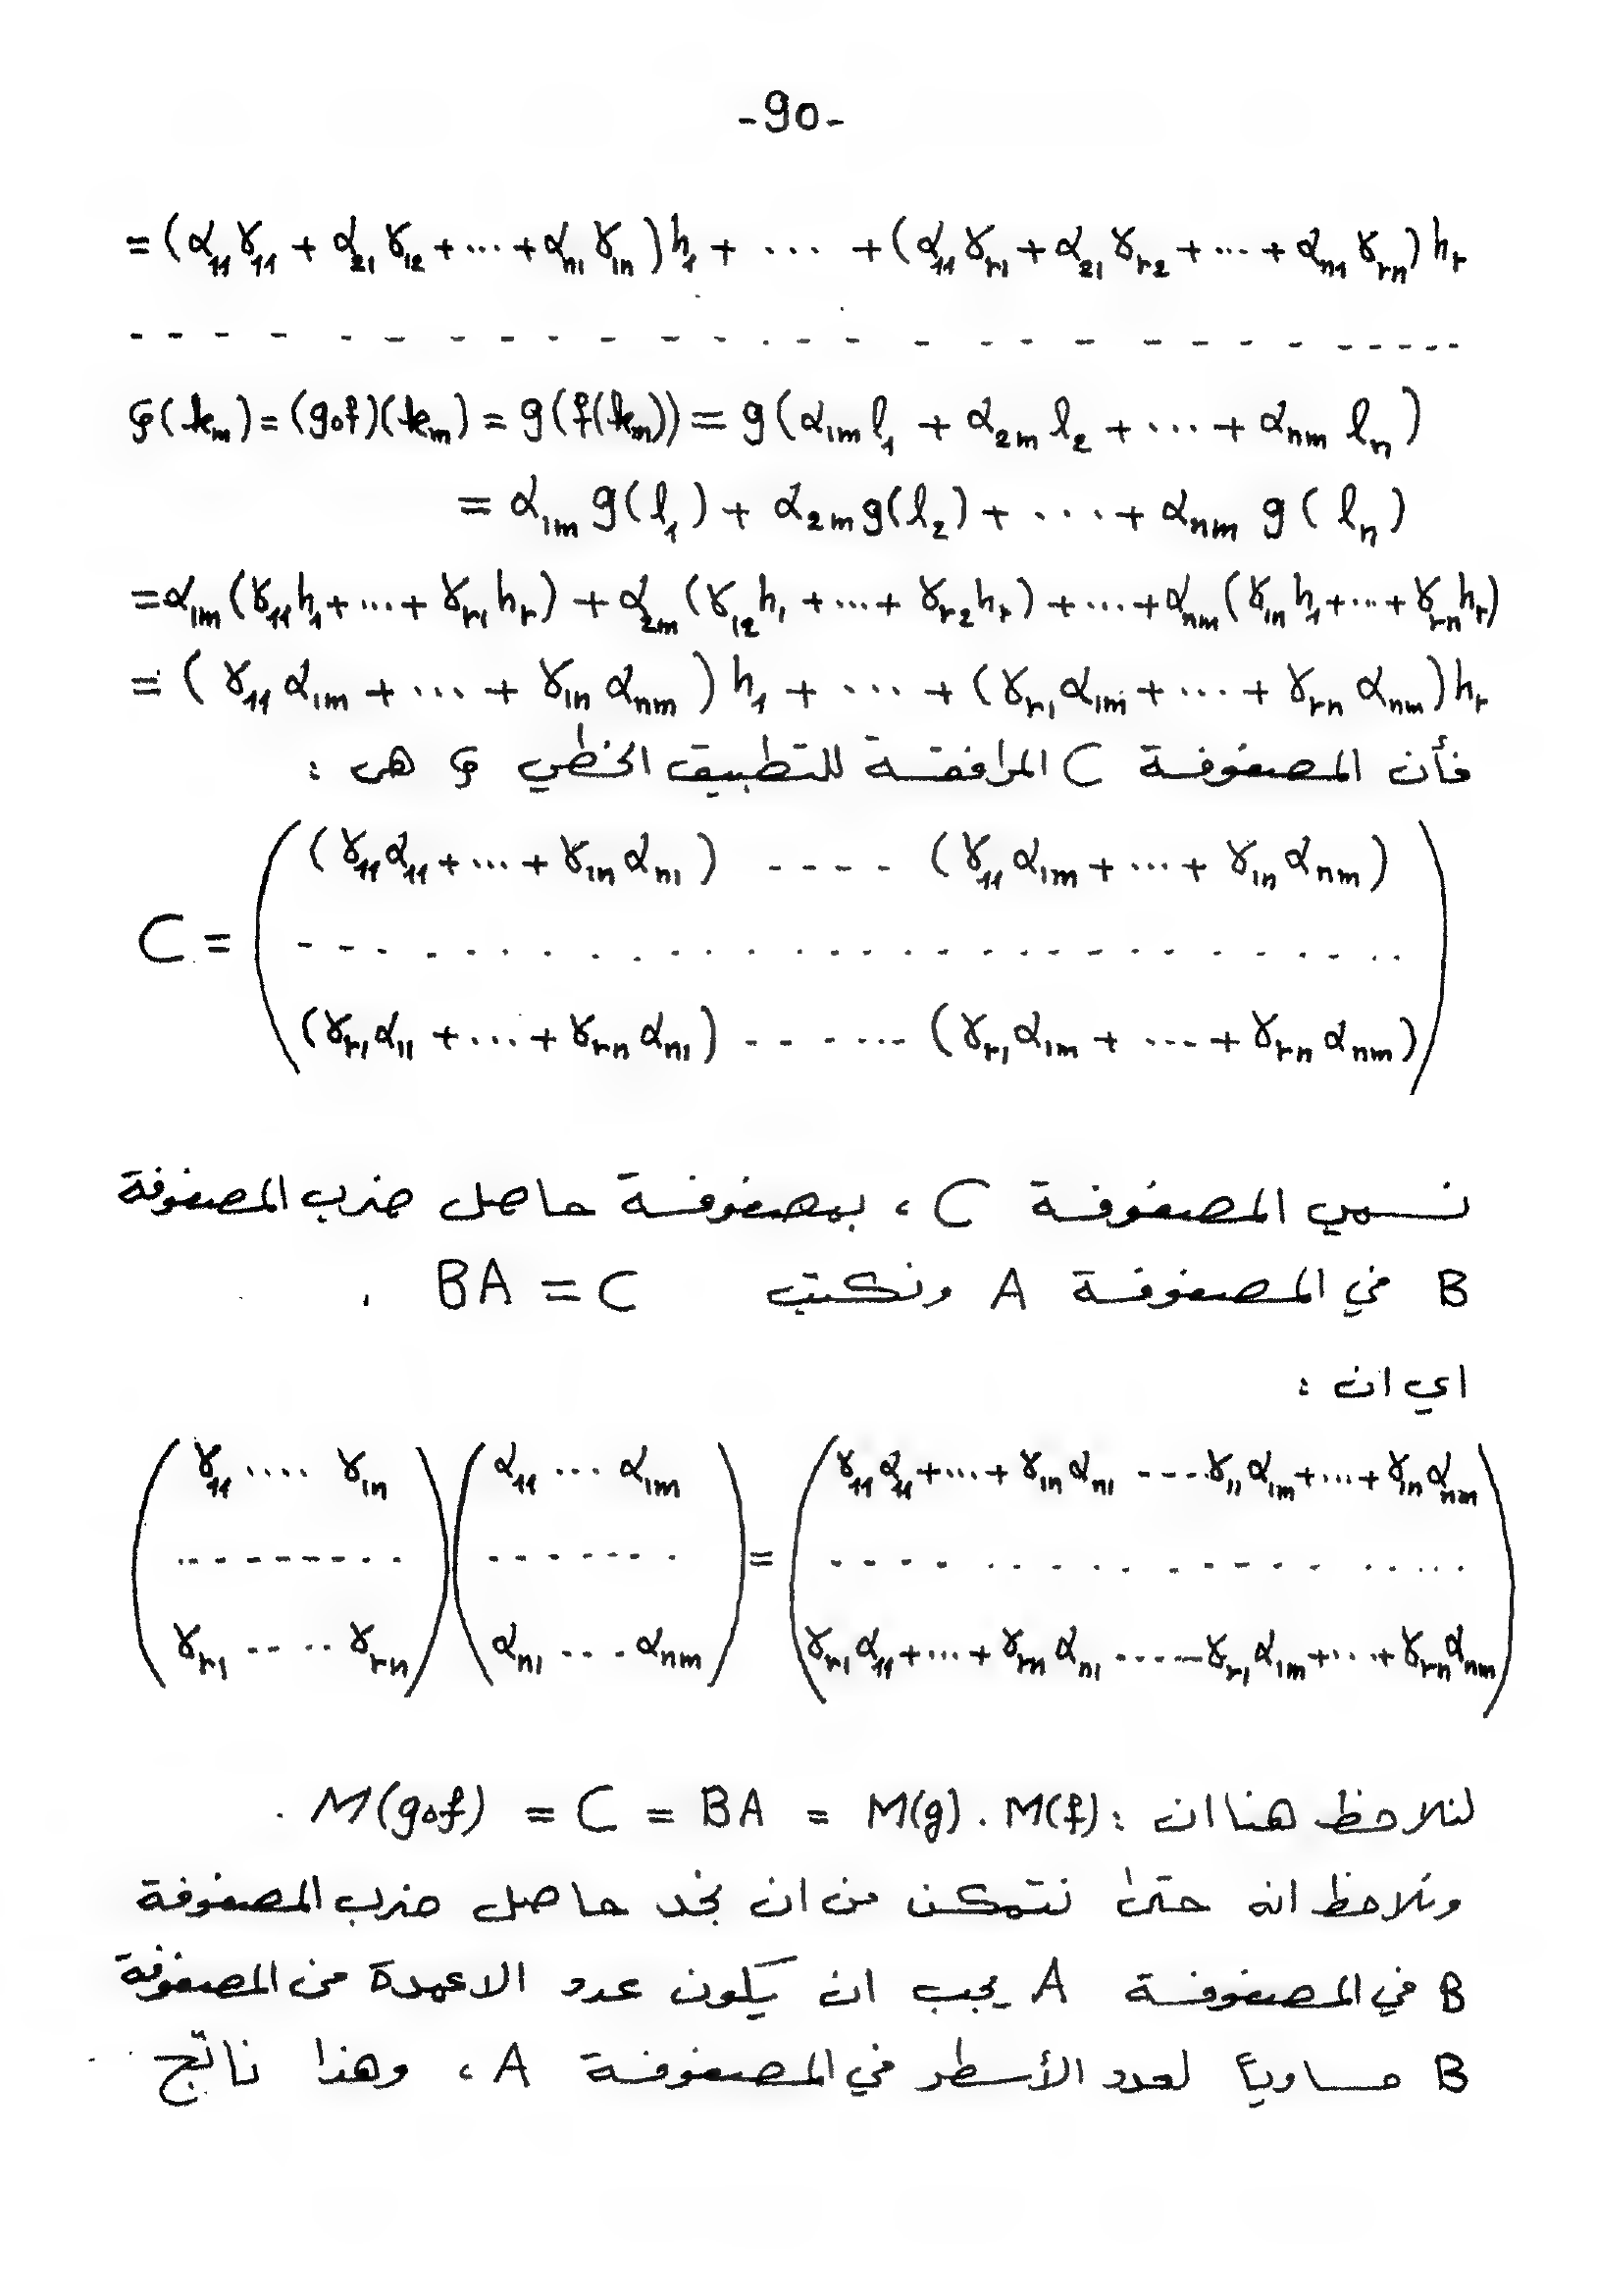 -90-
= (α₁₁ γ₁₁ + α₂₁ γ₁₂ + ... + αₙ₁ γ₁ₙ) h₁ + ... + (α₁₁ γᵣ₁ + α₂₁ γᵣ₂ + ... + αₙ₁ γᵣₙ) hᵣ
- - - - - - - - - - - - - - - - - - - - - - - -
φ(kₘ) = (gof)(kₘ) = g(f(kₘ)) = g(α₁ₘ l₁ + α₂ₘ l₂ + ... + αₙₘ lₙ)
= α₁ₘ g(l₁) + α₂ₘ g(l₂) + ... + αₙₘ g(lₙ)
= α₁ₘ (γ₁₁ h₁ + ... + γᵣ₁ hᵣ) + α₂ₘ (γ₁₂ h₁ + ... + γᵣ₂ hᵣ) + ... + αₙₘ (γ₁ₙ h₁ + ... + γᵣₙ hᵣ)
= (γ₁₁ α₁ₘ + ... + γ₁ₙ αₙₘ) h₁ + ... + (γᵣ₁ α₁ₘ + ... + γᵣₙ αₙₘ) hᵣ
فأن المصفوفة C المرافقة للتطبيق الخطي φ هي :
(γ₁₁ α₁₁ + ... + γ₁ₙ αₙ₁) - - - - (γ₁₁ α₁ₘ + ... + γ₁ₙ αₙₘ)
C = - - - - - - - - - - - - - - - - - - - -
(γᵣ₁ α₁₁ + ... + γᵣₙ αₙ₁) - - - - - - (γᵣ₁ α₁ₘ + ... + γᵣₙ αₙₘ)
نسمي المصفوفة C ، بمصفوفة حاصل ضرب المصفوفة
B في المصفوفة A ونكتب BA = C .
اي ان :
(γ₁₁ .... γ₁ₙ) (α₁₁ ... α₁ₘ) (γ₁₁ α₁₁ + ... + γ₁ₙ αₙ₁ - - - - γ₁₁ α₁ₘ + ... + γ₁ₙ αₙₘ)
- - - - - - - - - - - - - - - - = - - - - - - - - - - - - - - - -
(γᵣ₁ .... γᵣₙ) (αₙ₁ ... αₙₘ) (γᵣ₁ α₁₁ + ... + γᵣₙ αₙ₁ - - - - - γᵣ₁ α₁ₘ + ... + γᵣₙ αₙₘ)
لنلاحظ هنا ان : M(gof) = C = BA = M(g) . M(f) .
ونلاحظ انه حتى نتمكن من ان نجد حاصل ضرب المصفوفة
B في المصفوفة A يجب ان يكون عدد الاعمدة من المصفوفة
B مساوياً لعدد الأسطر في المصفوفة A ، وهذا ناتج